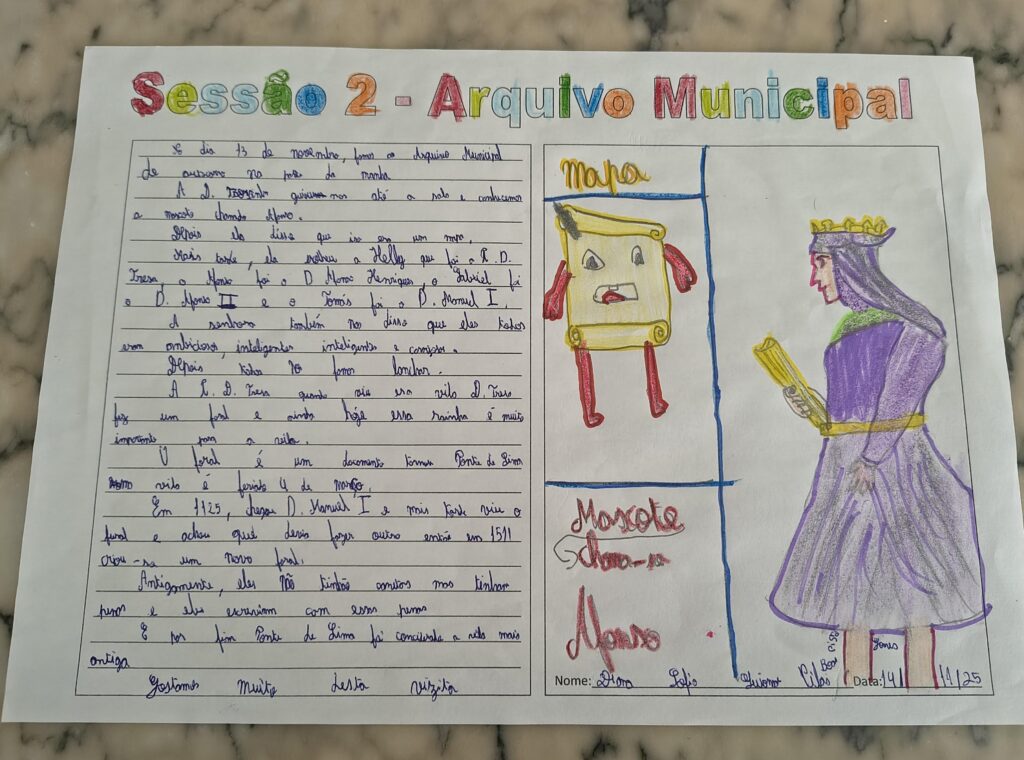 Sessão 2 - Arquivo Municipal
dia 13 de novembro, fomos ao Arquivo Municipal
de na da manhã
A D. guiou-nos até a sala e conhecemos
a mascote chamado Afonso.
Depois ela disse que isso era um mapa.
Mais tarde, ela a que foi a R. D.
Tresa, o foi o D. Afonso Henriques, o Gabriel foi
o D. Afonso III e o Tomás foi o D. Manuel I.
A senhora também nos disse que eles todos
eram ambiciosos, inteligentes inteligente e
Depois todos fomos lanchar.
A R. D. Tresa quando viu esa vila D. Tresa
fez um foral e ainda hoje essa rainha é muito
importante para a vila.
O foral é um documento tornou Ponte de Lima
vila é feriado 4 de março.
Em 1125, chegou D. Manuel I e mais tarde viu o
foral e achou que devia fazer outro então em 1511
criou-se um novo foral.
Antigamente, eles não tinhão canetas mas tinham
penas e eles escreviam com essas penas
E por fim Ponte de Lima foi a vila mais
antiga
Gostamos Muito Desta Vizita
Mapa
Mascote
chama-se
Afonso
Nome: Diana Guiomar Data: 14/ 11/25